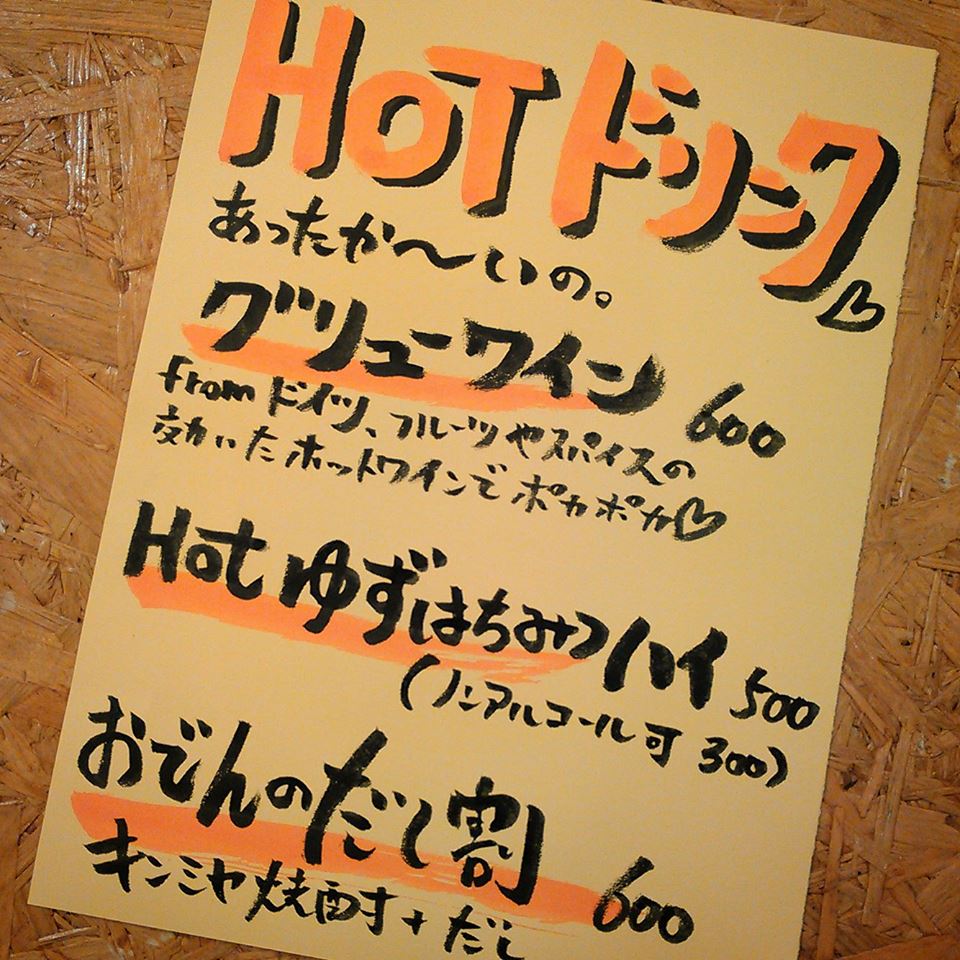 HOT ドリンク♡
あったか〜いの。
グリューワイン 600
from ドイツ、フルーツやスパイスの
効いたホットワインでポカポカ♡
Hot ゆずはちみつハイ 500
(ノンアルコール可 300)
おでんのだし割 600
キンミヤ焼酎+だし